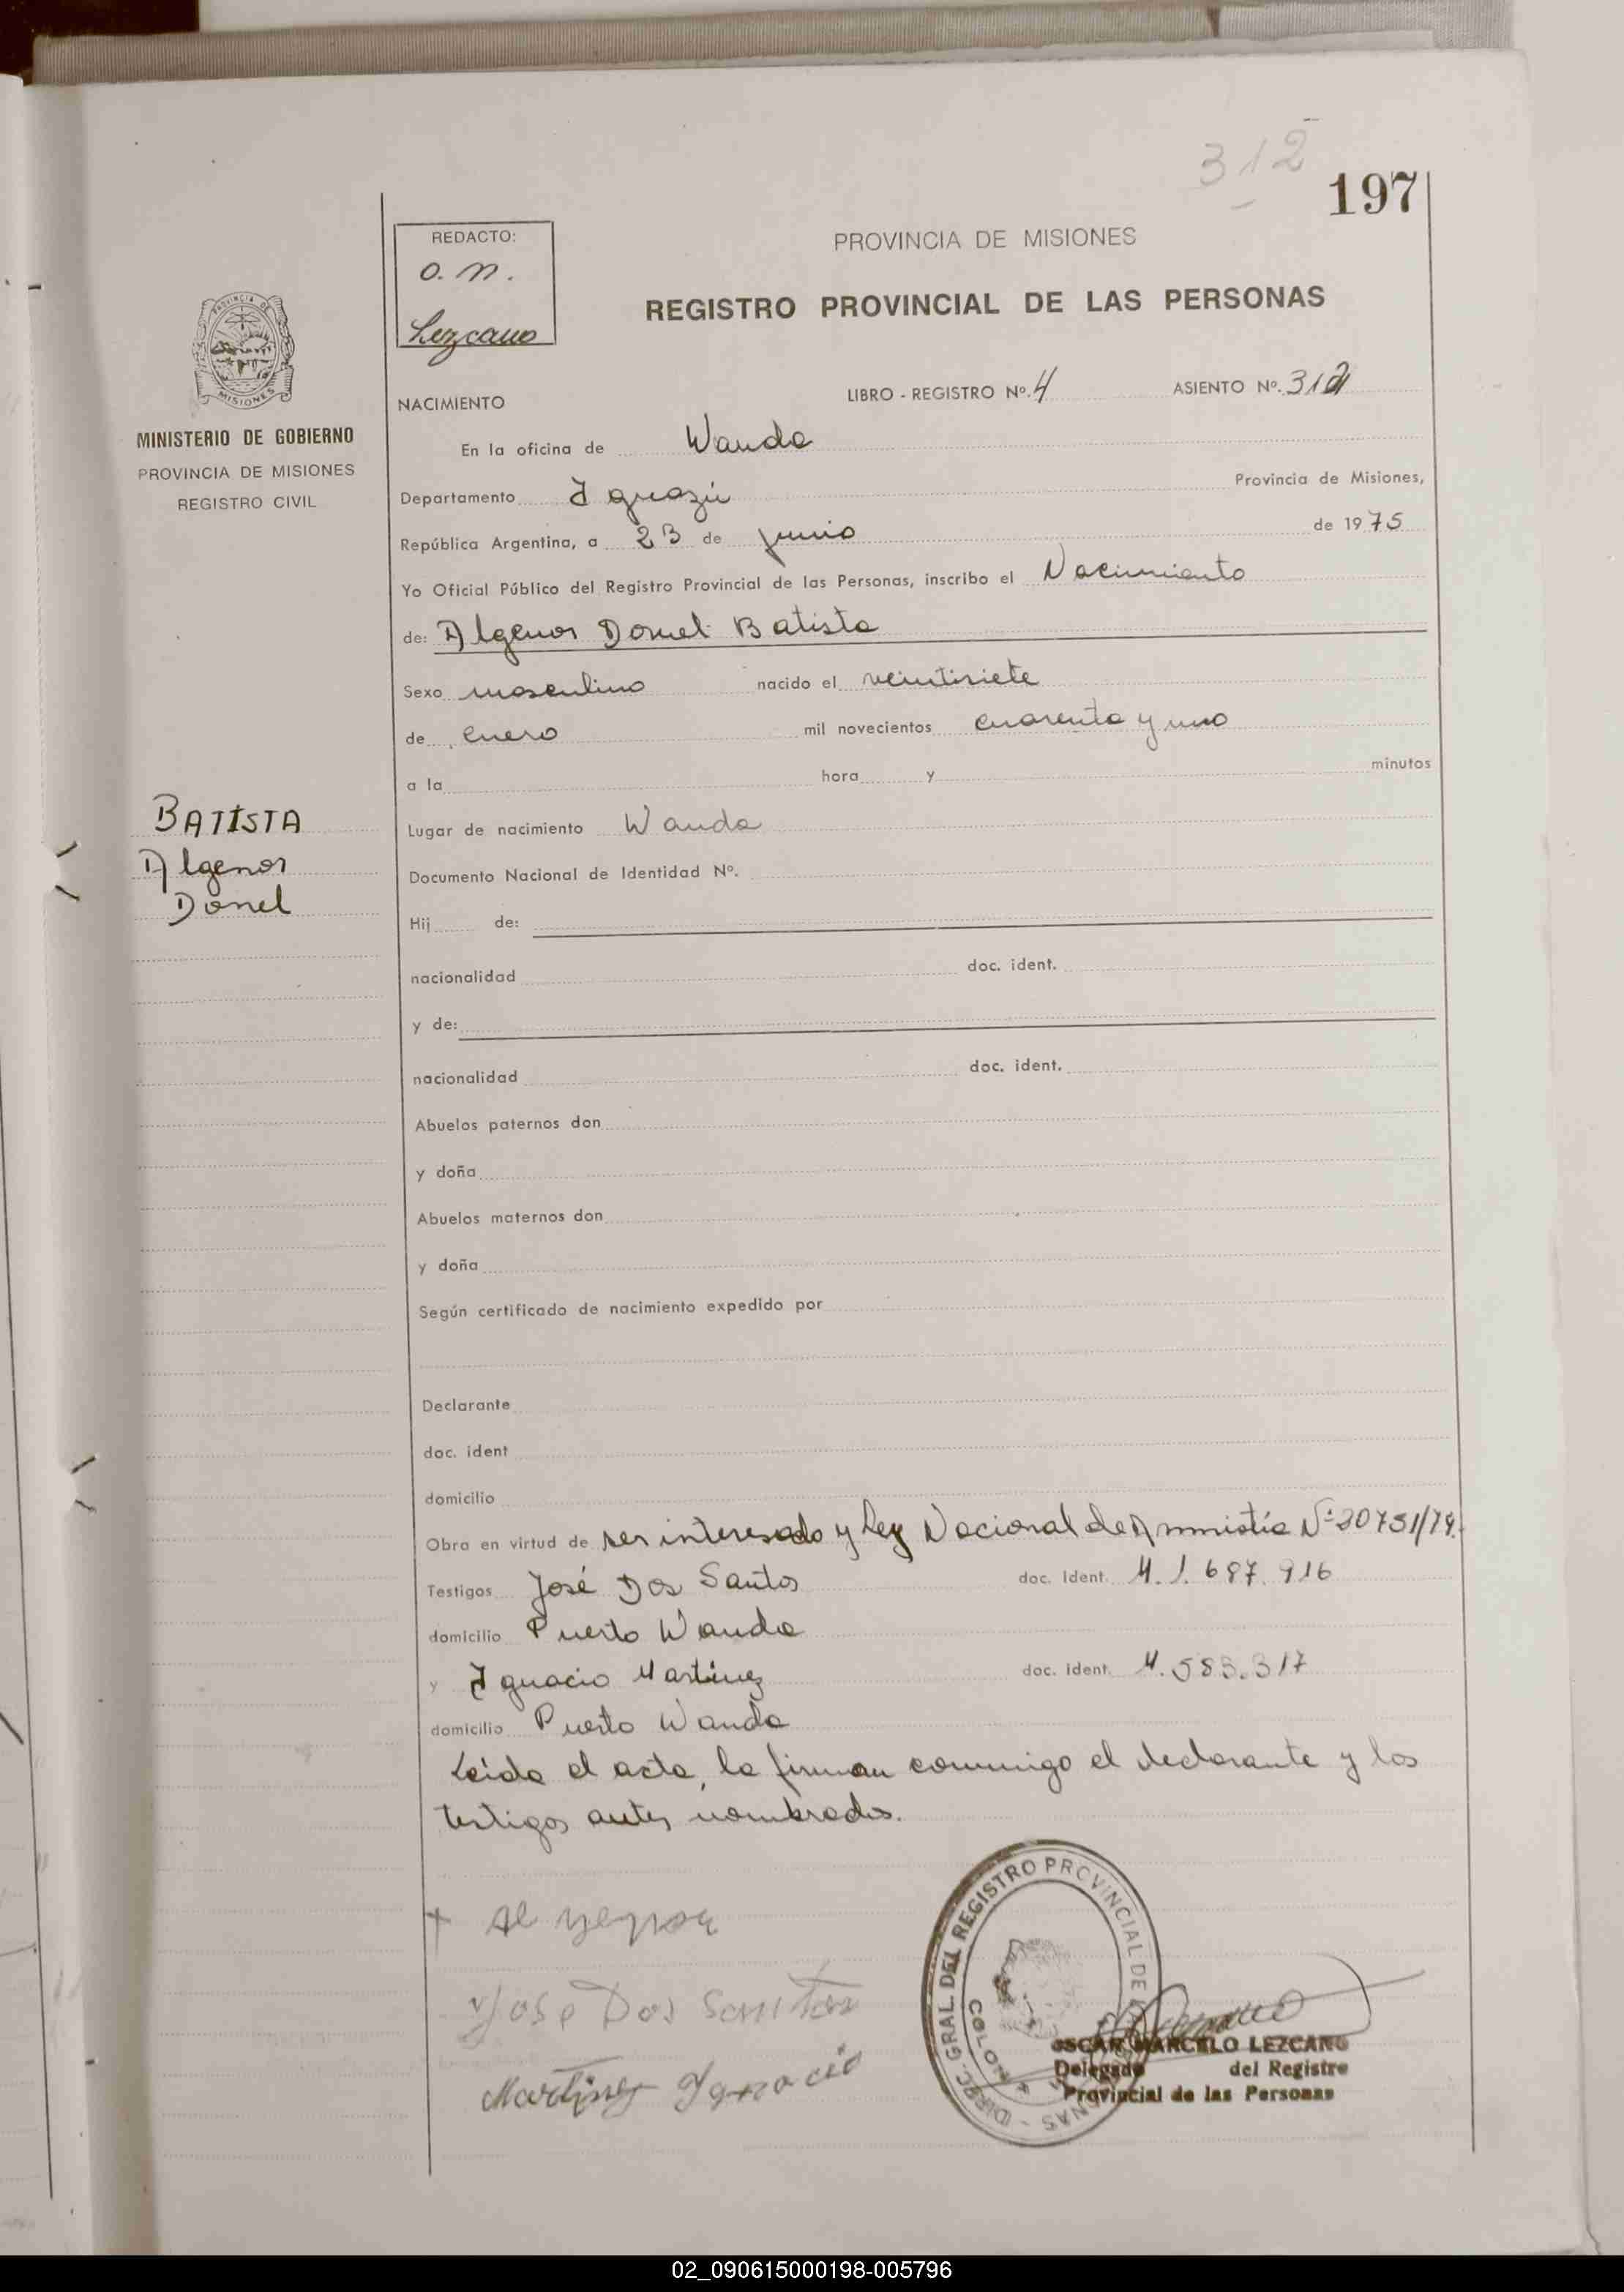 312
197
REDACTO:
O. M.
Lezcano
PROVINCIA DE MISIONES
REGISTRO PROVINCIAL DE LAS PERSONAS
MINISTERIO DE GOBIERNO
PROVINCIA DE MISIONES
REGISTRO CIVIL
NACIMIENTO
LIBRO - REGISTRO Nº. 4 ASIENTO Nº. 312
En la oficina de Wanda
Departamento Iguazú Provincia de Misiones,
República Argentina, a 23 de junio de 1975
Yo Oficial Público del Registro Provincial de las Personas, inscribo el Nacimiento
de: Algenor Donel Batista
Sexo masculino nacido el veintisiete
de enero mil novecientos cuarenta y uno
a la hora y minutos
BATISTA
Algenor
Donel
Lugar de nacimiento Wanda
Documento Nacional de Identidad Nº.
Hij de:
nacionalidad doc. ident.
y de:
nacionalidad doc. ident.
Abuelos paternos don
y doña
Abuelos maternos don
y doña
Según certificado de nacimiento expedido por
Declarante
doc. ident
domicilio
Obra en virtud de ser interesado y Ley Nacional de Amnistía Nº 20751/74.
Testigos José Dos Santos doc. Ident. M. 1.687.916
domicilio Puerto Wanda
y Ignacio Martínez doc. ident. M. 583.317
domicilio Puerto Wanda
Leída el acta, la firman conmigo el declarante y los
testigos antes nombrados.
José Dos Santos
Martinez Ignacio
DIREC. GRAL DEL REGISTRO PROVINCIAL DE
COLON
OSCAR MARCELO LEZCANO
Delegado del Registro
Provincial de las Personas
02_090615000198-005796